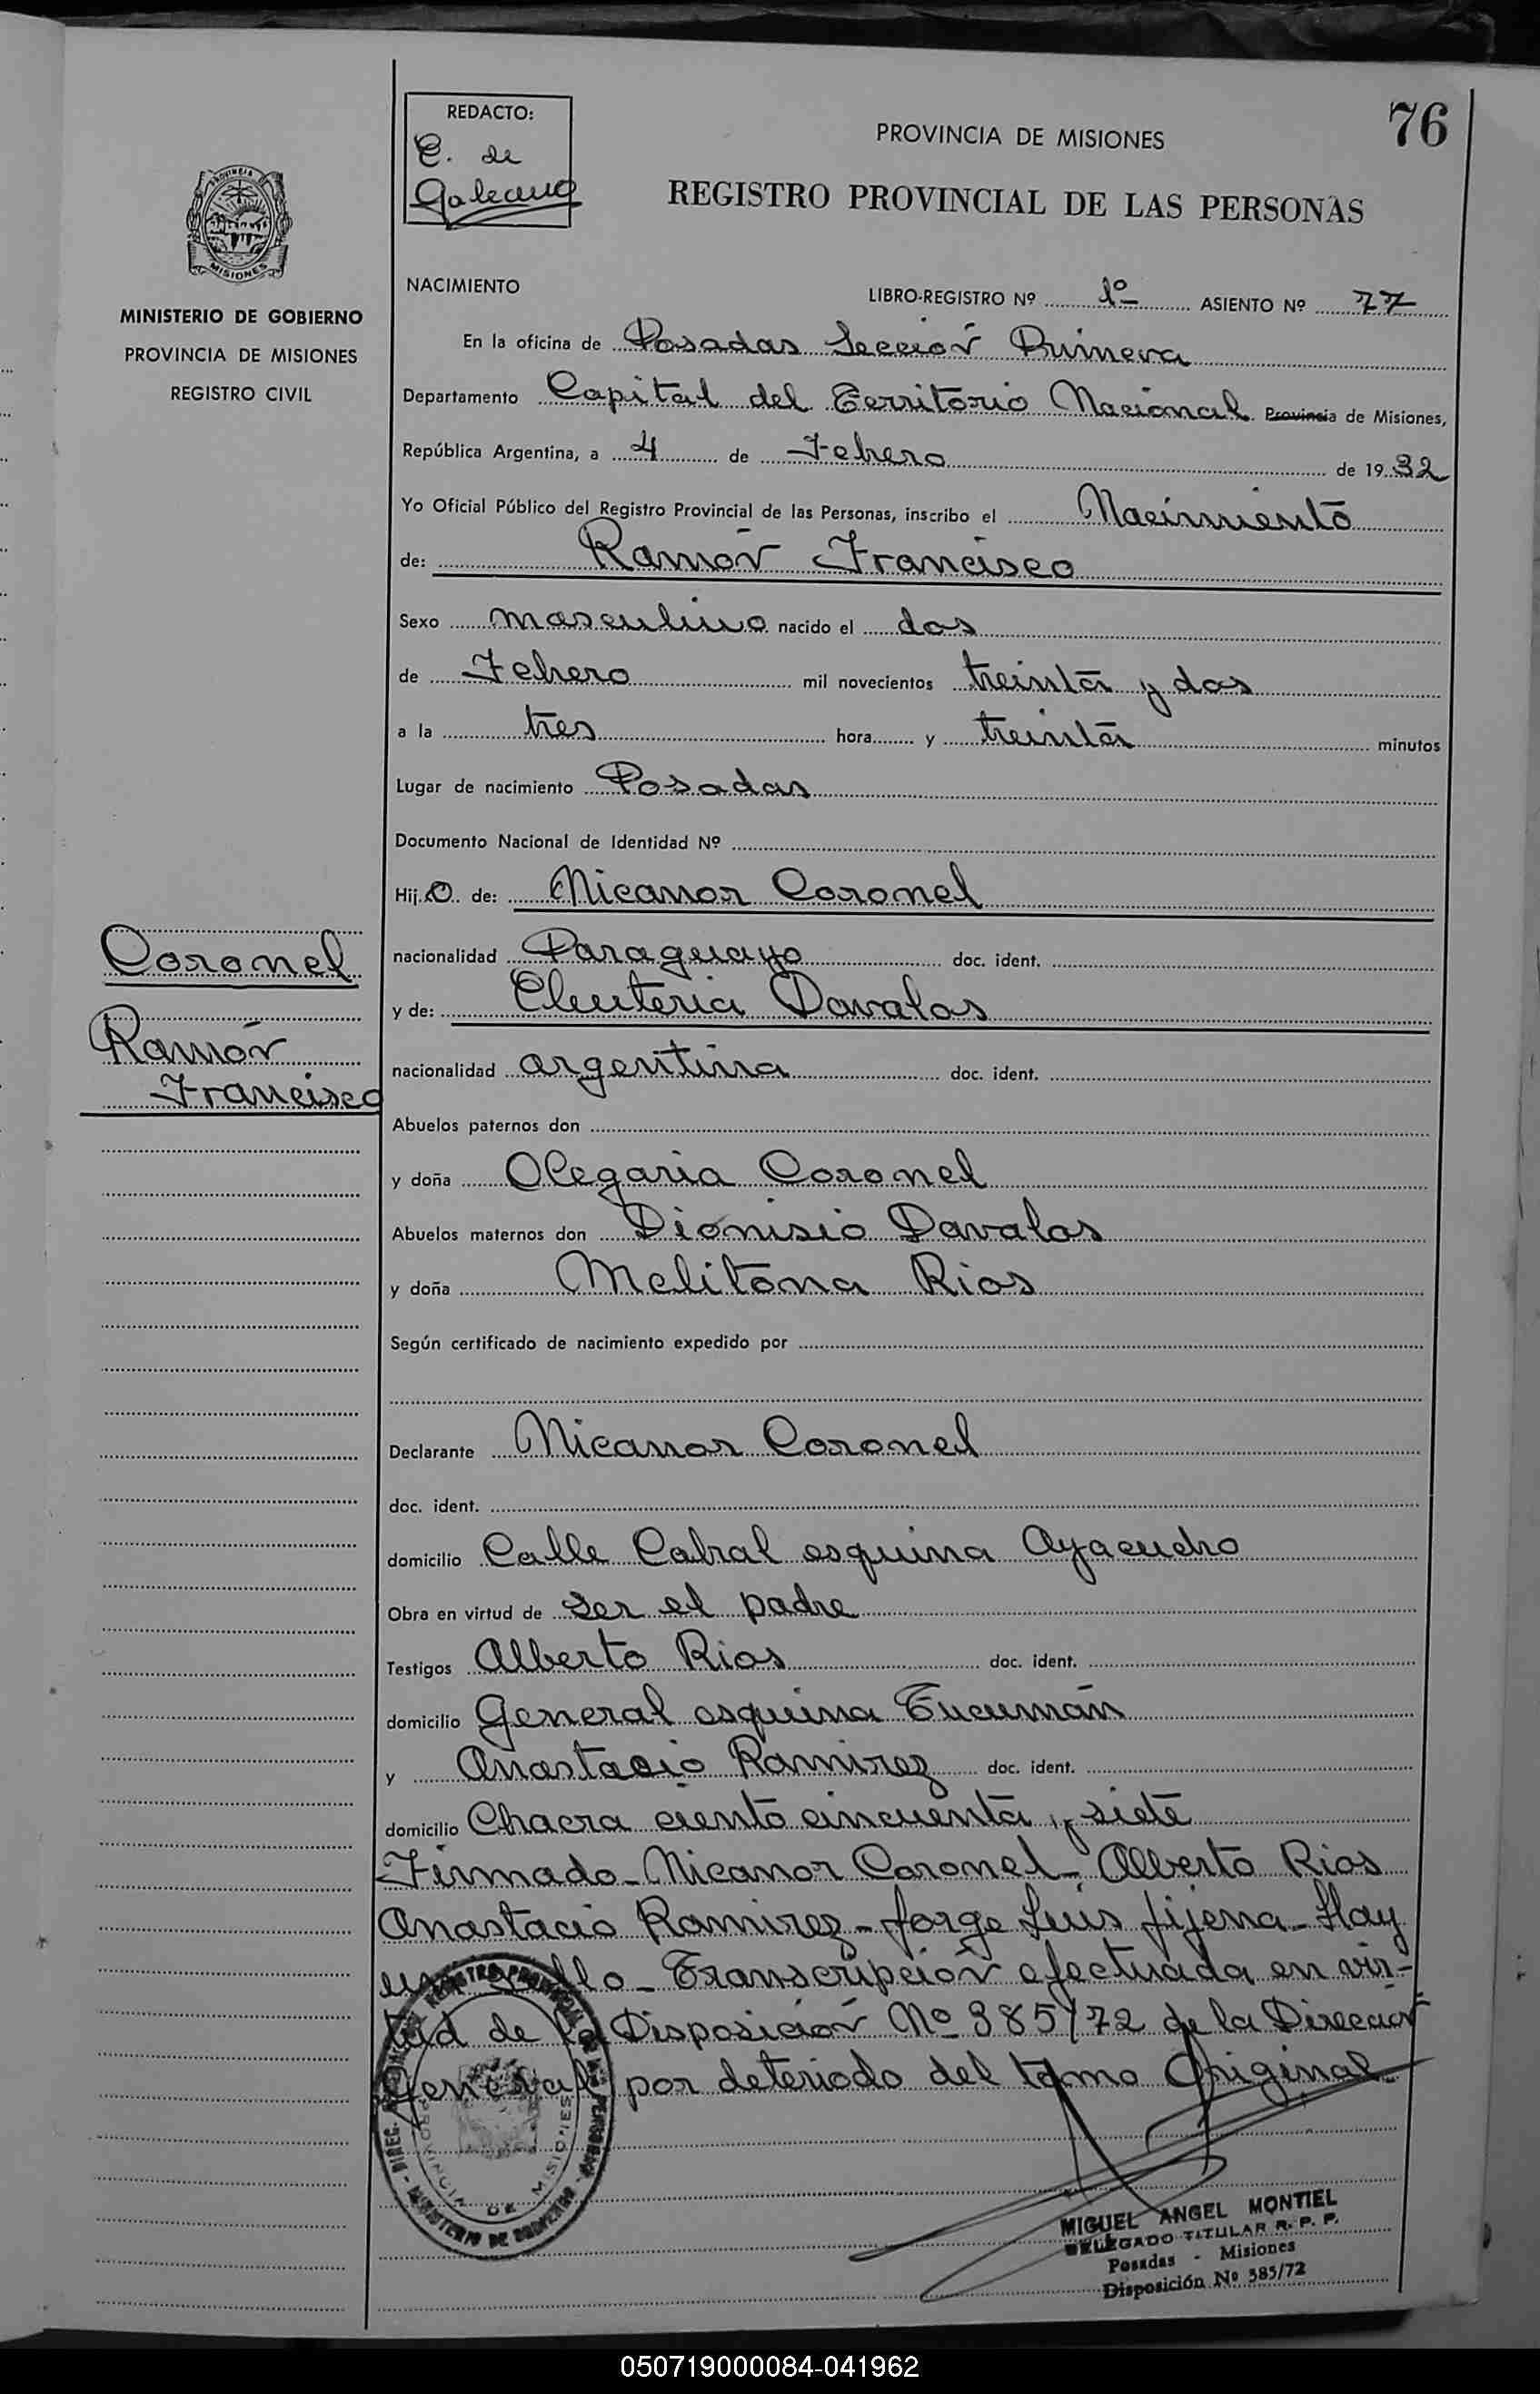 76
REDACTO:
C. de
Galeano
PROVINCIA DE MISIONES
REGISTRO PROVINCIAL DE LAS PERSONAS
PROVINCIA DE
MISIONES
MINISTERIO DE GOBIERNO
PROVINCIA DE MISIONES
REGISTRO CIVIL
NACIMIENTO
LIBRO-REGISTRO Nº 1º ASIENTO Nº 77
En la oficina de Posadas Sección Primera
Departamento Capital del Territorio Nacional Provincia de Misiones,
República Argentina, a 4 de Febrero de 1932
Yo Oficial Público del Registro Provincial de las Personas, inscribo el Nacimiento
de: Ramón Francisco
Sexo masculino nacido el dos
de Febrero mil novecientos treinta y dos
a la tres hora y treinta minutos
Lugar de nacimiento Posadas
Documento Nacional de Identidad Nº
Hijo de: Nicanor Coronel
Coronel
Ramón
Francisco
nacionalidad Paraguayo doc. ident.
y de: Eleuteria Davalos
nacionalidad argentina doc. ident.
Abuelos paternos don
y doña Olegaria Coronel
Abuelos maternos don Dionisio Davalos
y doña Melitona Rios
Según certificado de nacimiento expedido por
Declarante Nicanor Coronel
doc. ident.
domicilio Calle Cabral esquina Ayacucho
Obra en virtud de ser el padre
Testigos Alberto Rios doc. ident.
domicilio General esquina Tucumán
y Anastacio Ramirez doc. ident.
domicilio Chacra ciento cincuenta y siete
Firmado - Nicanor Coronel - Alberto Rios
Anastacio Ramirez - Jorge Luis Jijena - Hay
un sello - Transcripción efectuada en vir-
tud de la Disposición Nº 385/72 de la Dirección
General por deteriodo del tomo Original
PROVINCIA DE MISIONES
MIGUEL ANGEL MONTIEL
DELEGADO TITULAR R. P. P.
Posadas - Misiones
Disposición Nº 385/72
050719000084-041962